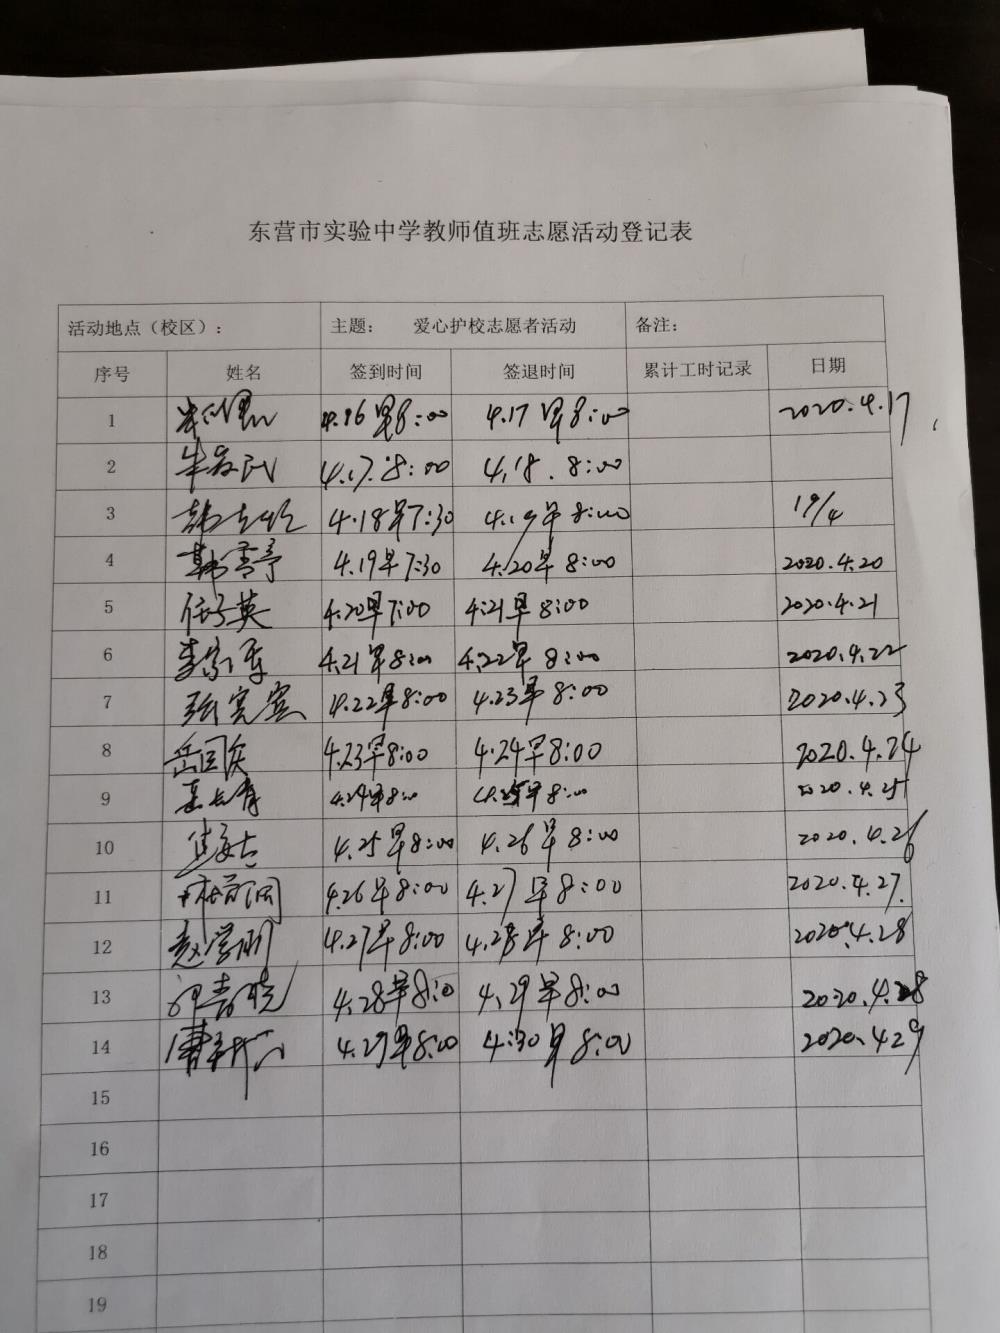 东营市实验中学教师值班志愿活动登记表
活动地点（校区）： 主题： 爱心护校志愿者活动 备注：
序号 姓名 签到时间 签退时间 累计工时记录 日期
1 4.16早8:00 4.17早8:00 2020.4.17
2 4.17.8:00 4.18.8:00
3 4.18早7:30 4.19早8:00 19/4
4 韩雪亭 4.19早7:30 4.20早8:00 2020.4.20
5 任子英 4.20早7:00 4.21早8:00 2020.4.21
6 4.21早8:00 4.22早8:00 2020.4.22
7 4.22早8:00 4.23早8:00 2020.4.23
8 4.23早8:00 4.24早8:00 2020.4.24
9 4.24早8:00 4.25早8:00 2020.4.25
10 4.25早8:00 4.26早8:00 2020.4.26
11 4.26早8:00 4.27早8:00 2020.4.27.
12 4.27早8:00 4.28早8:00 2020.4.28
13 4.28早8:00 4.29早8:00 2020.4.28
14 4.29早8:00 4.30早8:00 2020.4.29
15
16
17
18
19